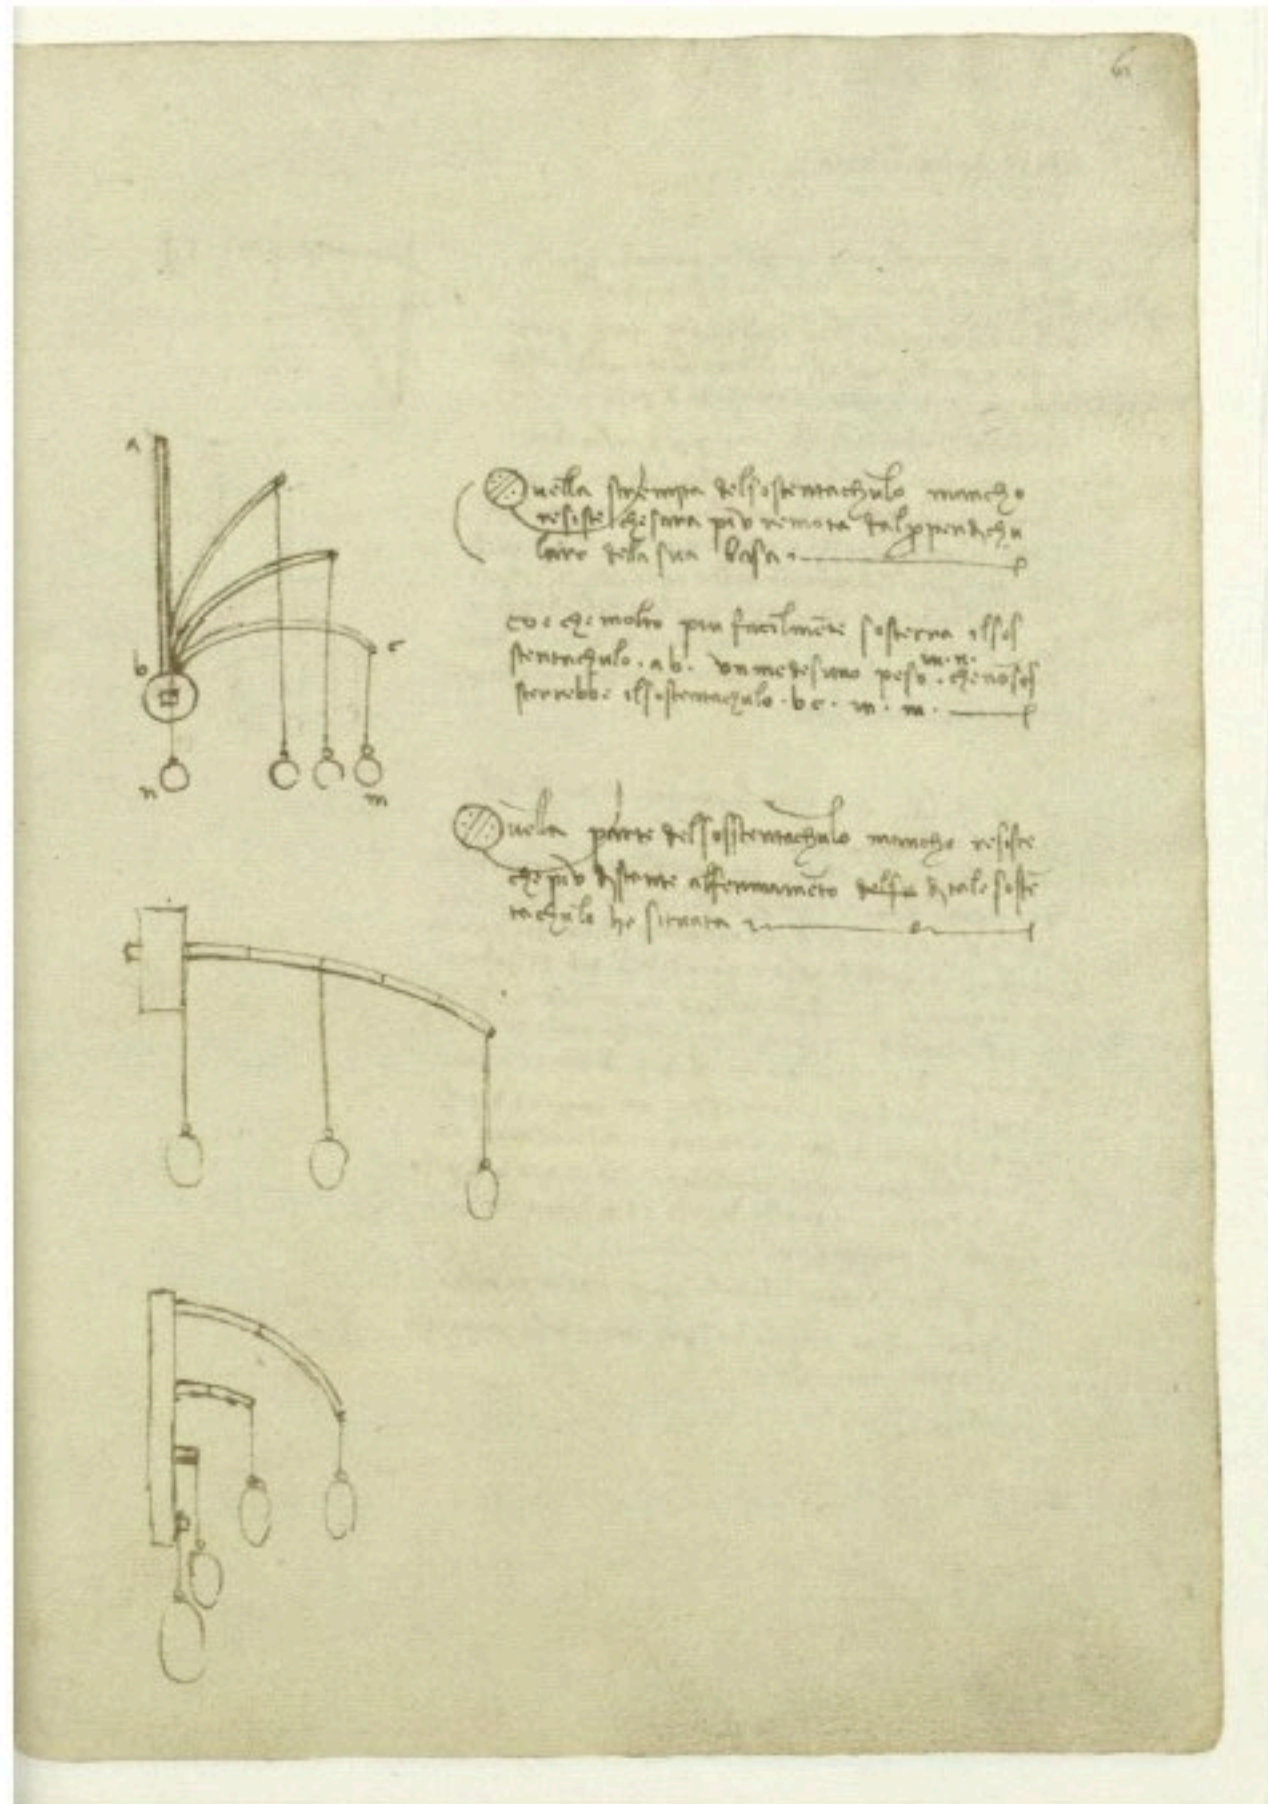 61
Quella stremita del sostentachulo mancho
resiste che sara piv remota dal perpendichu
lare della sua basa
coe che molto piu facilmēte sosterra il sos
m. n.
stentachulo . a b . vn medesimo peso . che nō sos
sterrebbe il sostentachulo . b c . m . m .
Quella parte del sosstentachulo mancho resiste
che piv distante al fermamēto del su di tale sostē
tachulo he situata
a
c
b
n
m